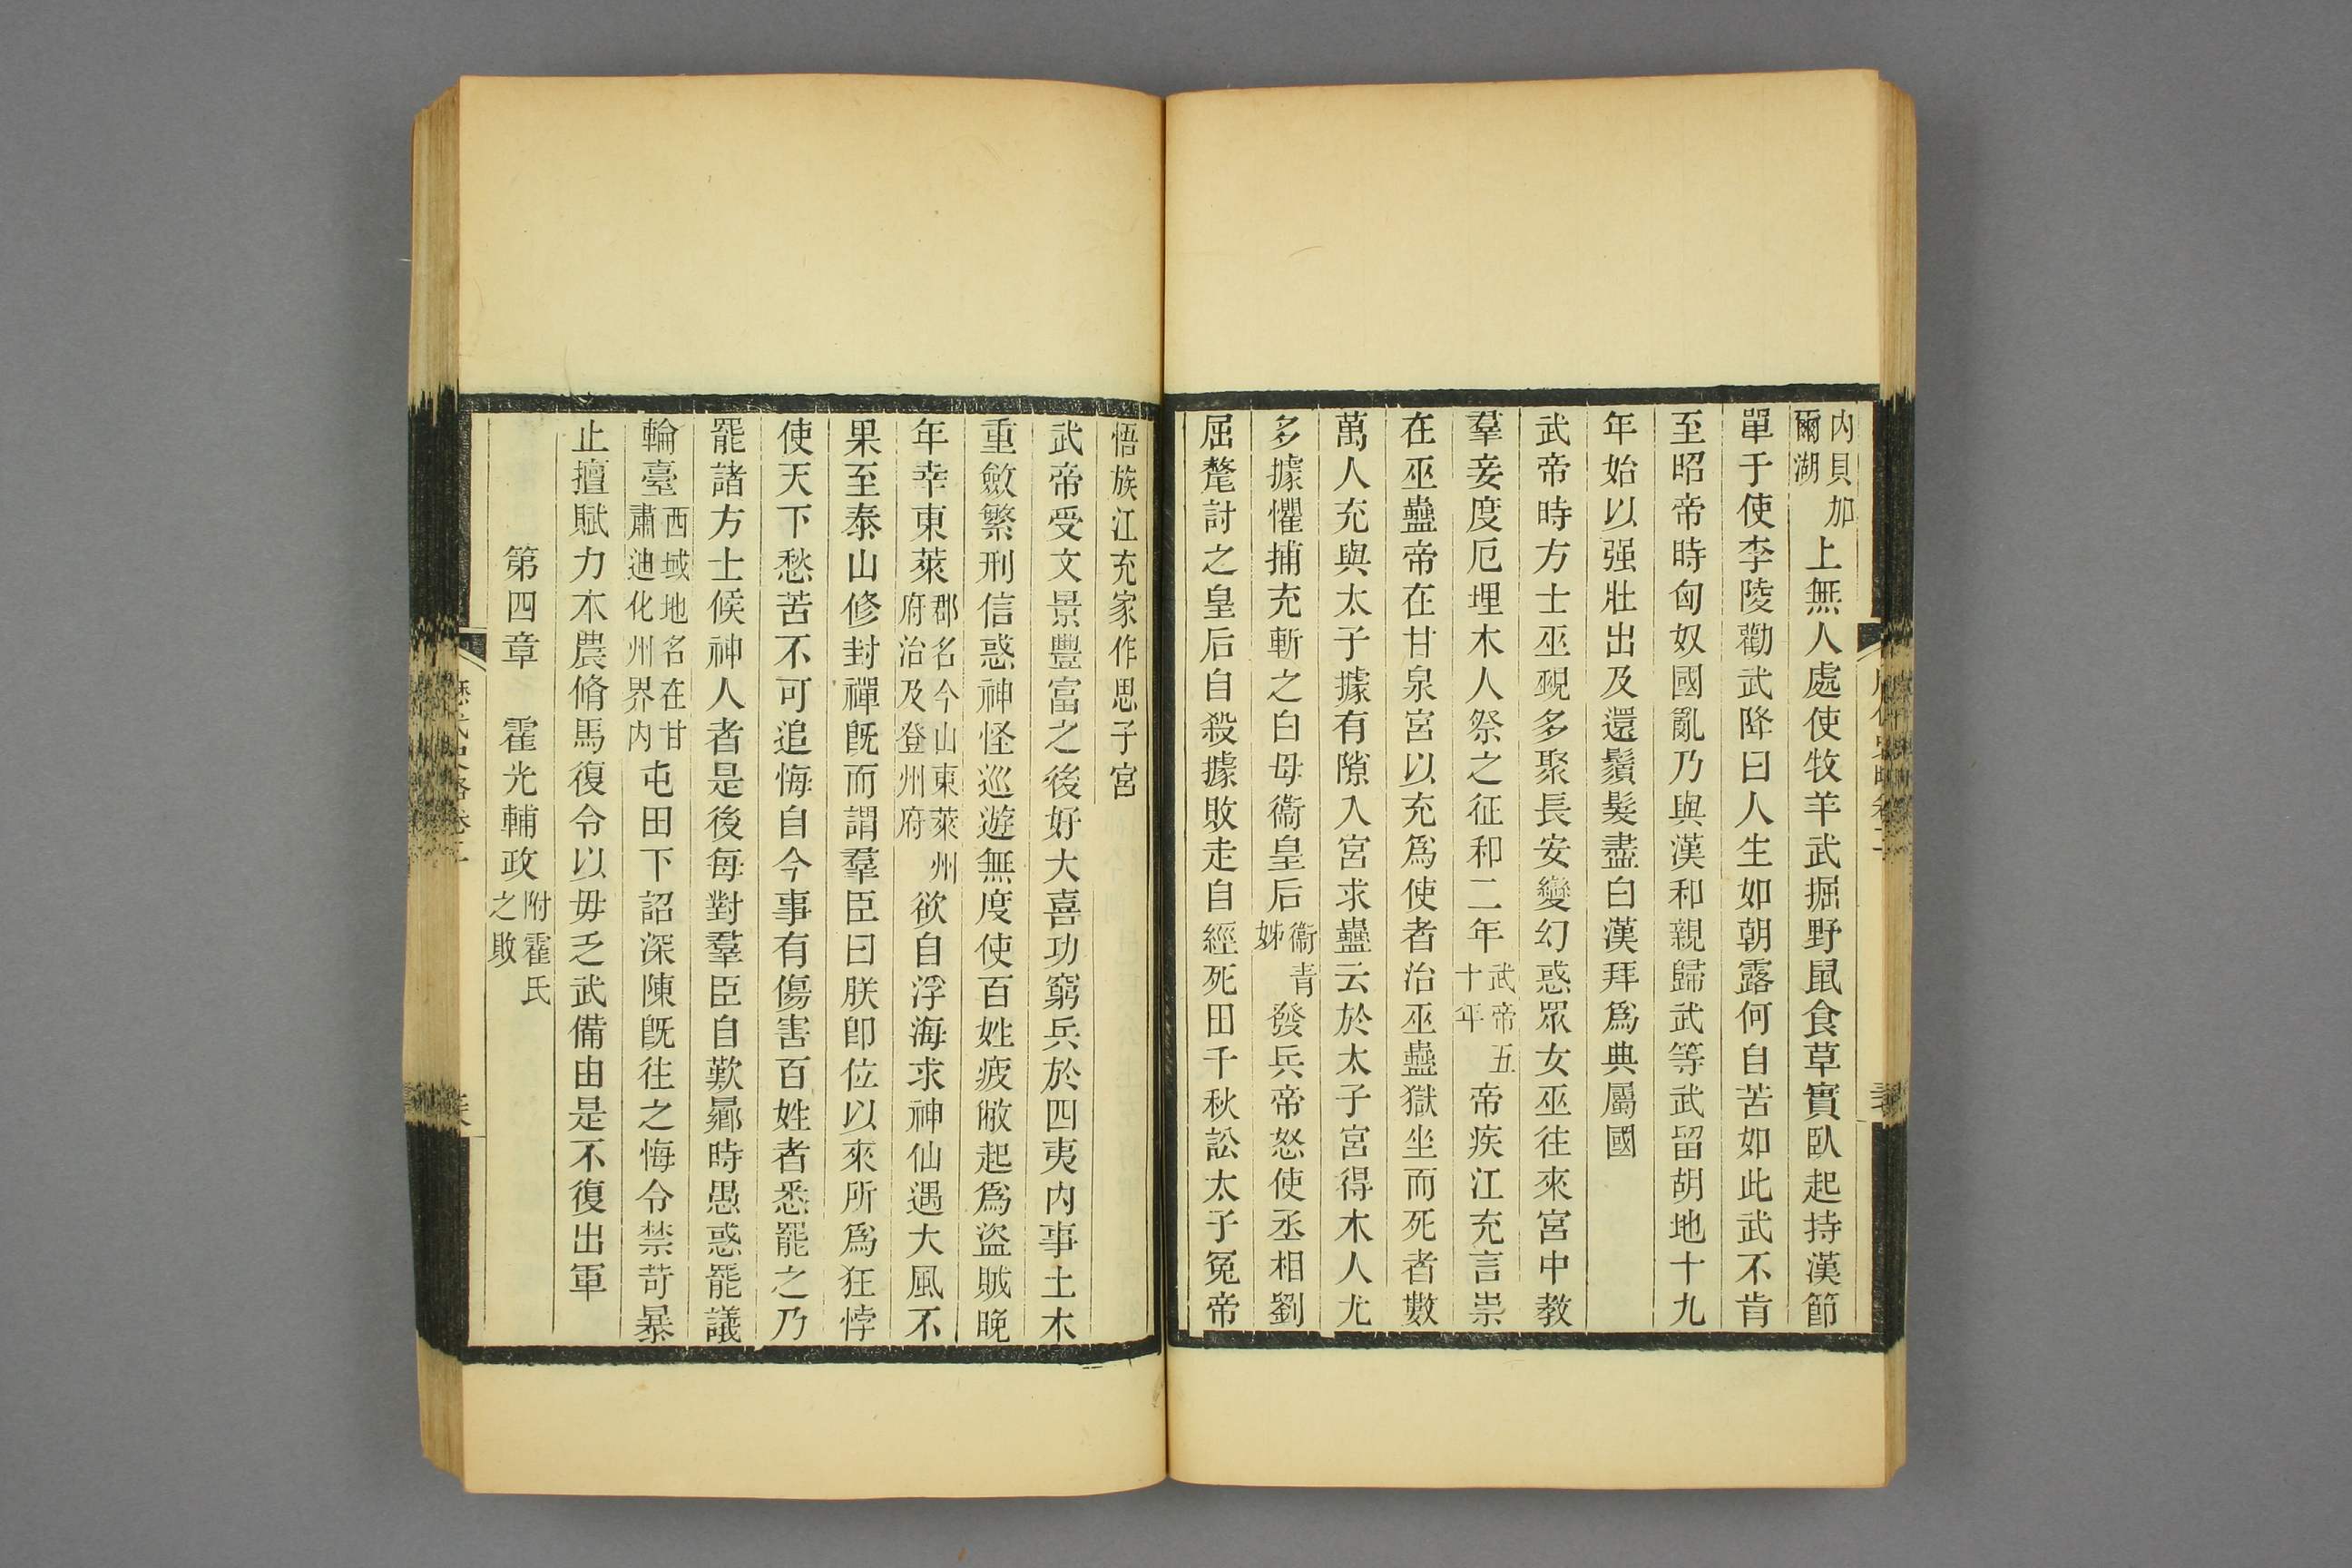 內貝加爾湖上無人處使牧羊武掘野鼠食草實臥起持漢節
單于使李陵勸武降曰人生如朝露何自苦如此武不肯
至昭帝時匈奴國亂乃與漢和親歸武等武留胡地十九
年始以强壯出及還鬚髮盡白漢拜爲典屬國
武帝時方士巫覡多聚長安變幻惑眾女巫往來宮中教
羣妾度厄埋木人祭之征和二年武帝五十年帝疾江充言祟
在巫蠱帝在甘泉宮以充爲使者治巫蠱獄坐而死者數
萬人充與太子據有隙入宮求蠱云於太子宮得木人尤
多據懼捕充斬之白母衞皇后衞青姊發兵帝怒使丞相劉
屈氂討之皇后自殺據敗走自經死田千秋訟太子冤帝
悟族江充家作思子宮
武帝受文景豐富之後好大喜功窮兵於四夷內事土木
重斂繁刑信惑神怪巡遊無度使百姓疲敝起爲盜賊晚
年幸東萊郡名今山東萊州府治及登州府欲自浮海求神仙遇大風不
果至泰山修封禪旣而謂羣臣曰朕卽位以來所爲狂悖
使天下愁苦不可追悔自今事有傷害百姓者悉罷之乃
罷諸方士候神人者是後每對羣臣自歎曏時愚惑罷議
輪臺西域地名在甘肅迪化州界內屯田下詔深陳旣往之悔令禁苛暴
止擅賦力本農脩馬復令以毋乏武備由是不復出軍
第四章 霍光輔政附霍氏之敗
歷代史略卷二